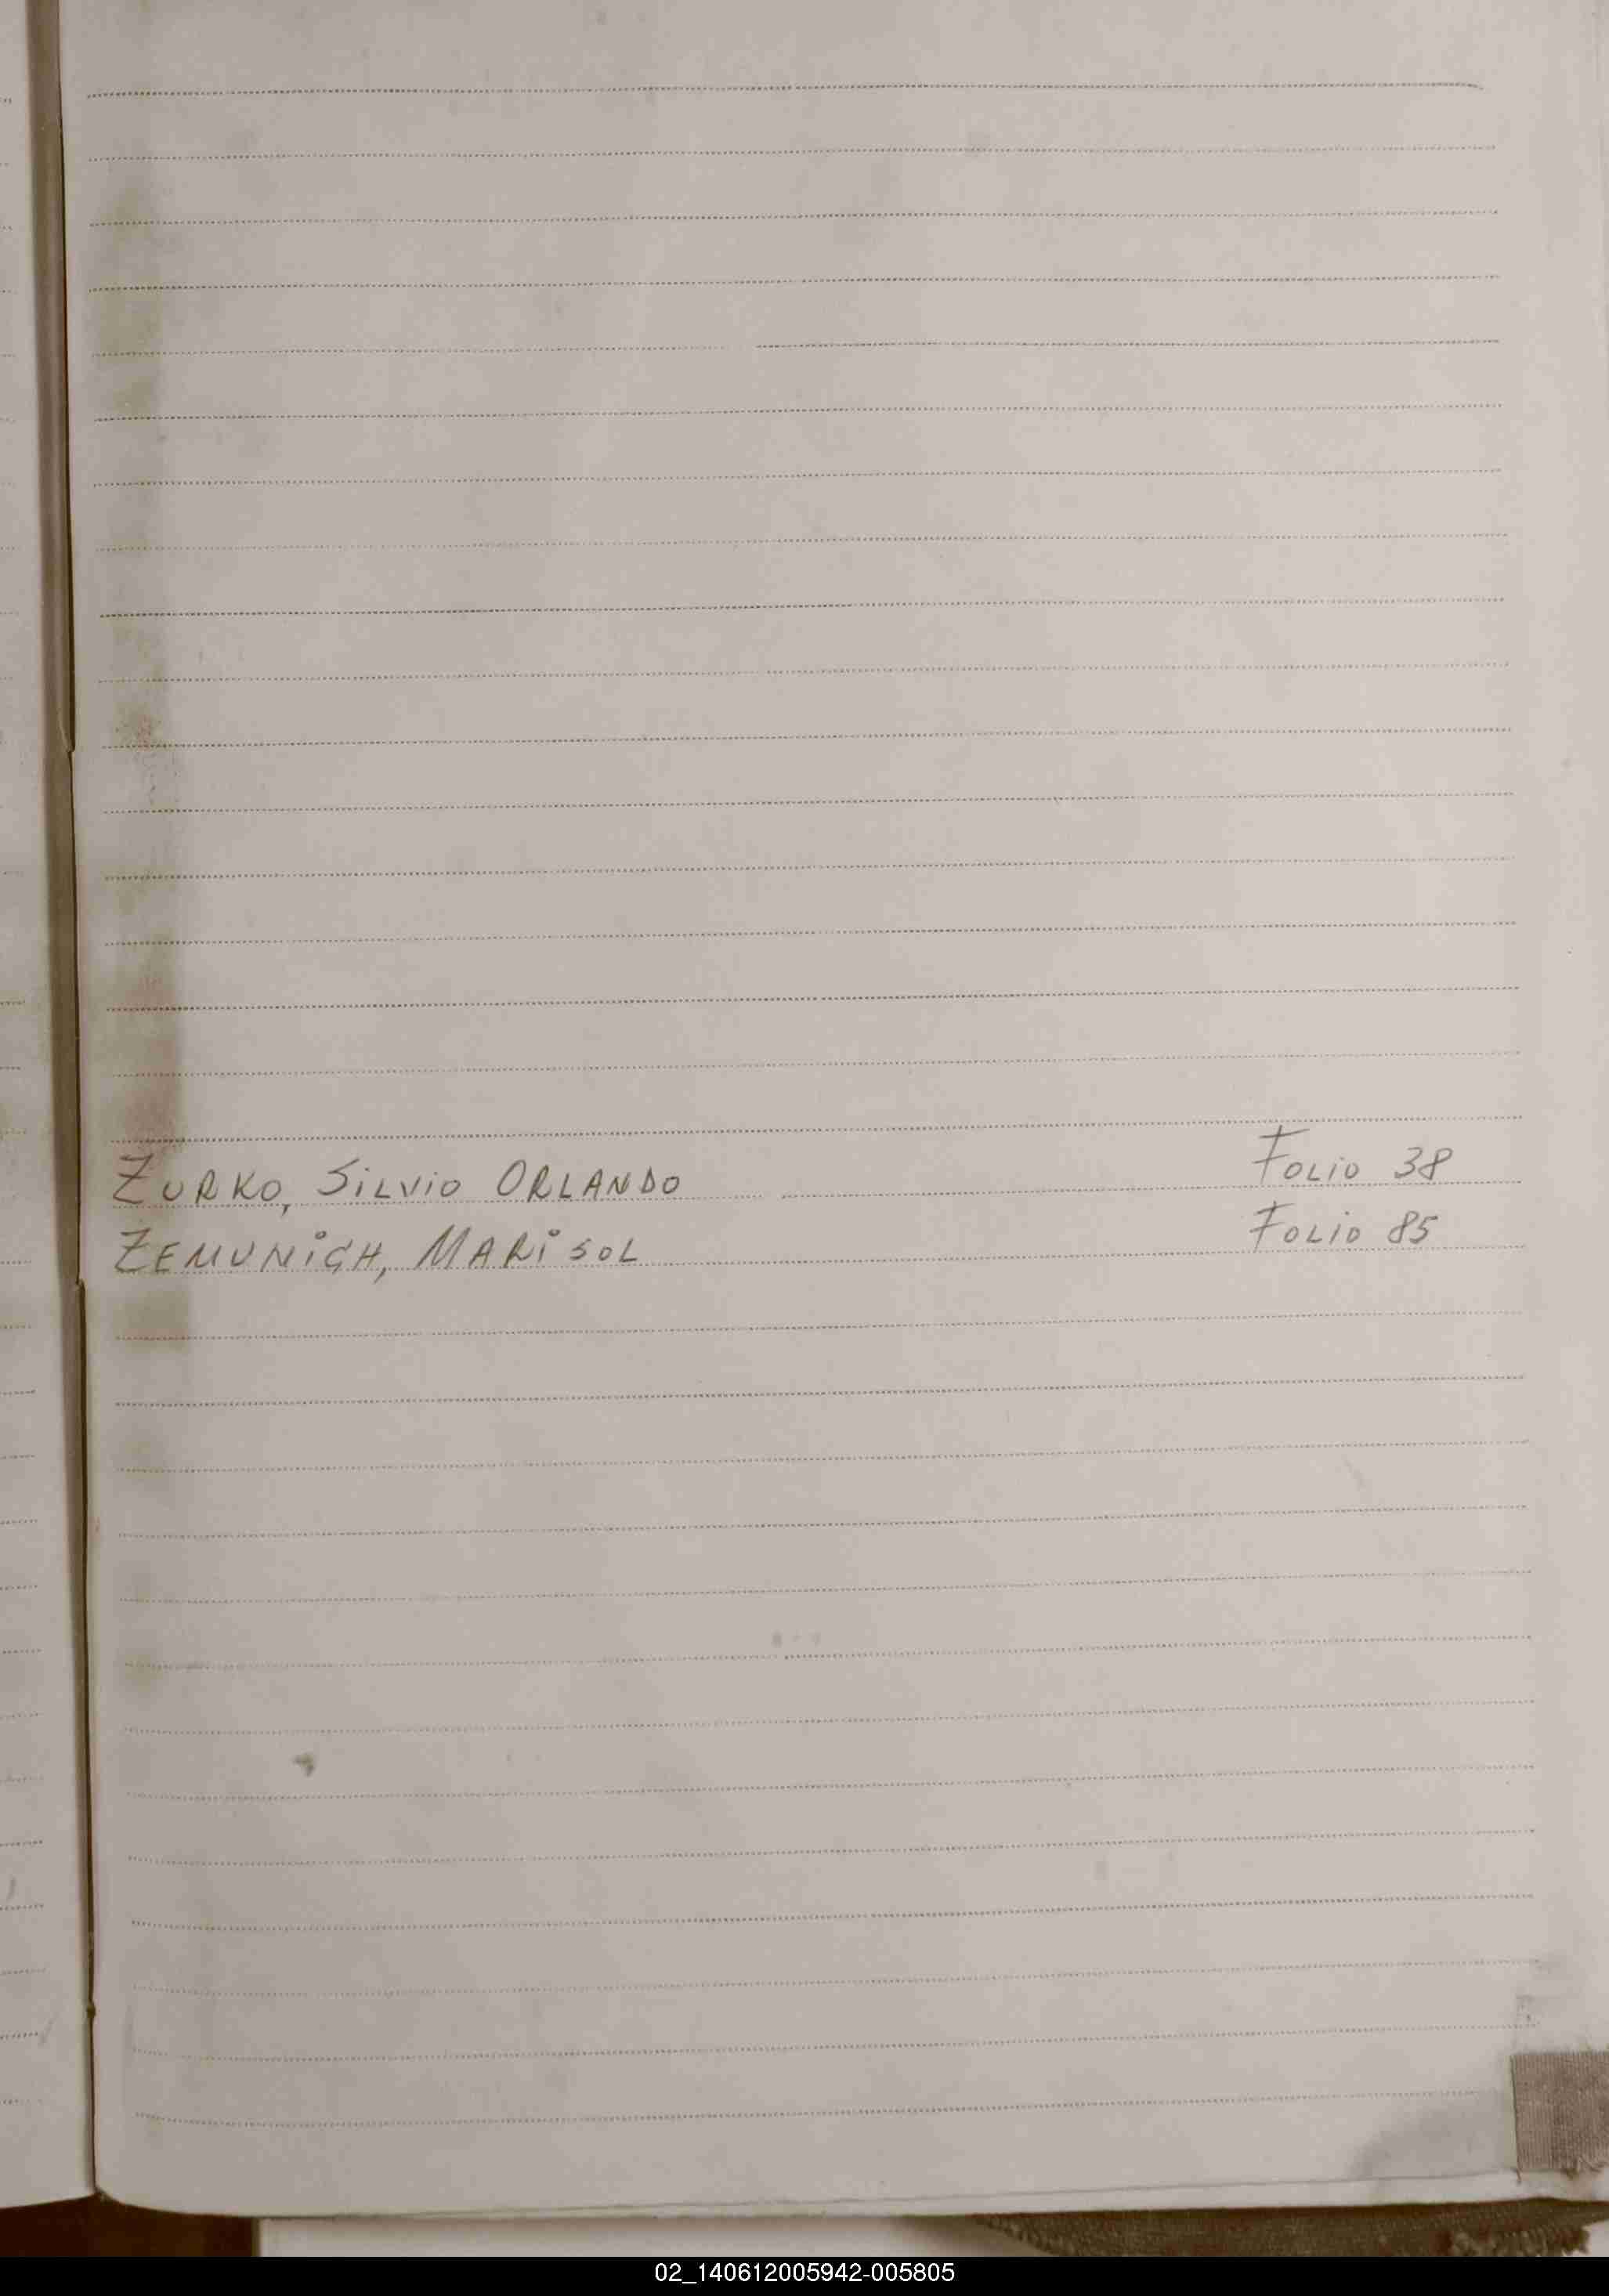 ZURKO, SiLViO ORLANDO FOLiO 38
ZEMUNiCH, MARiSOL FOLiO 85
02_140612005942-005805